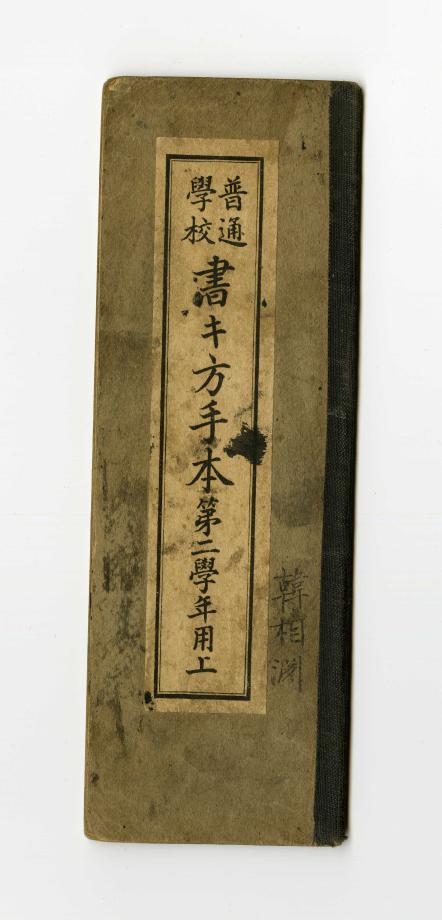 普通
學校
書キ方手本第二學年用上
韓相淵